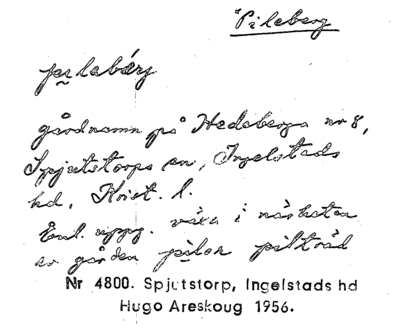 Pileberg
pelabärj
gårdnamn på Hedeberga nr 8,
Spjutstorps sn, Ingelstads
hd, Krist. l.
Enl. uppg. växa i närheten
av gården pilar piltträd
Nr 4800. Spjutstorp, Ingelstads hd
Hugo Areskoug 1956.